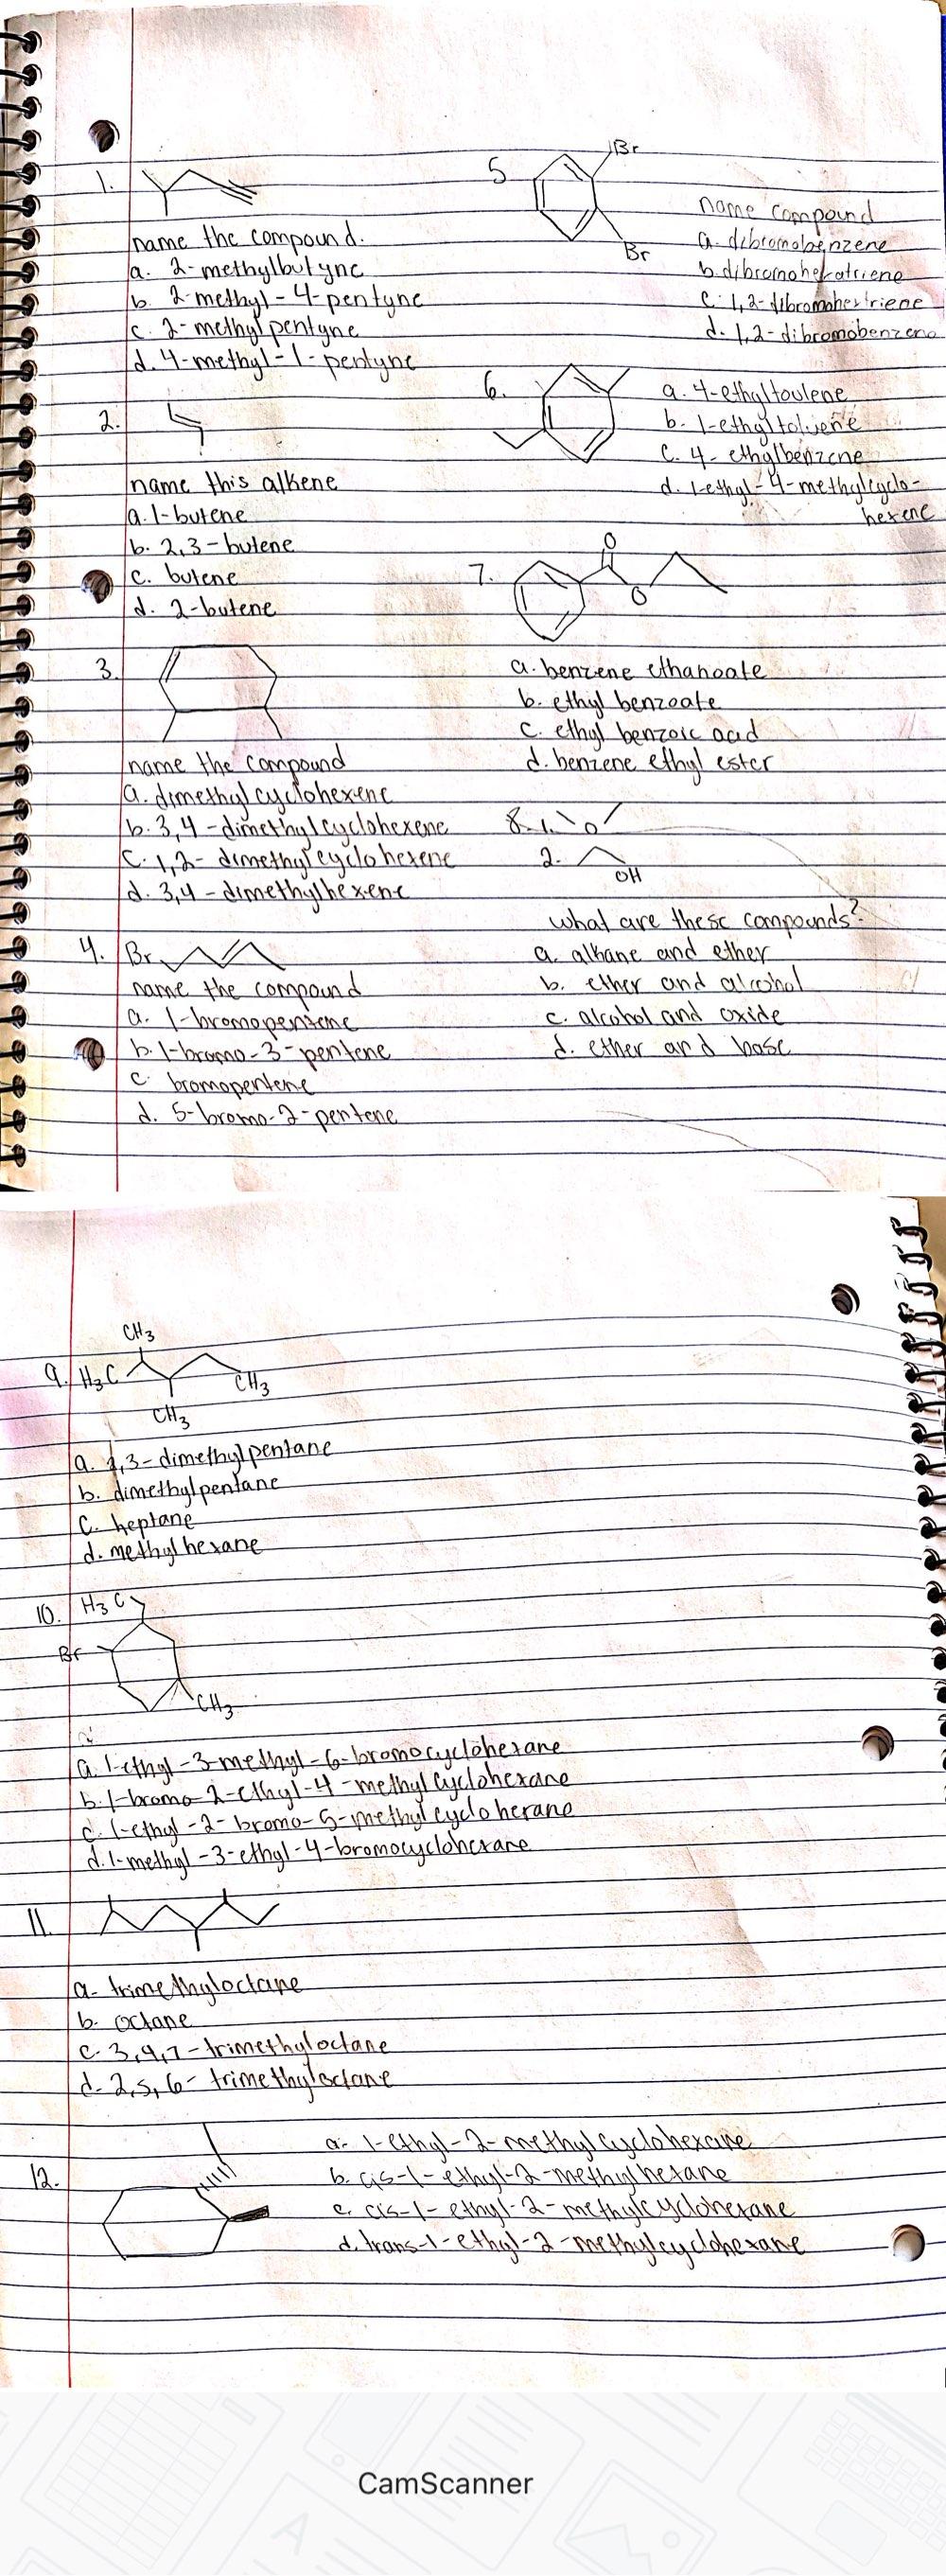 1.
name the compound.
a. 2-methylbutyne
b. 2-methyl-4-pentyne
c. 2-methylpentyne
d. 4-methyl-1-pentyne
2.
name this alkene
a. 1-butene
b. 2,3-butene
c. butene
d. 2-butene
3.
name the compound
a. dimethylcyclohexene
b. 3,4-dimethylcyclohexene
c. 1,2-dimethylcyclohexene
d. 3,4-dimethylhexene
4. Br
name the compound
a. 1-bromopentene
b. 1-bromo-3-pentene
c. bromopentene
d. 5-bromo-2-pentene
5
Br
Br
name compound
a. dibromobenzene
b. dibromohexatriene
c. 1,2-dibromohextriene
d. 1,2-dibromobenzene
6.
a. 4-ethyltoulene
b. 1-ethyltoluene
c. 4-ethylbenzene
d. 1-ethyl-4-methylcyclo-
hexene
7.
O
O
a. benzene ethanoate
b. ethyl benzoate
c. ethyl benzoic acid
d. benzene ethyl ester
8. 1. O
2.
OH
what are these compounds?
a. alkane and ether
b. ether and alcohol
c. alcohol and oxide
d. ether and base
CH3
9. H3C
CH3
CH3
a. 2,3-dimethylpentane
b. dimethylpentane
c. heptane
d. methylhexane
10. H3C
Br
CH3
a. 1-ethyl-3-methyl-6-bromocyclohexane
b. 1-bromo-2-ethyl-4-methylcyclohexane
c. 1-ethyl-2-bromo-5-methylcyclohexane
d. 1-methyl-3-ethyl-4-bromocyclohexane
11.
a. trimethyloctane
b. octane
c. 3,4,7-trimethyloctane
d. 2,5,6-trimethyloctane
12.
a. 1-ethyl-2-methylcyclohexane
b. cis-1-ethyl-2-methylhexane
c. cis-1-ethyl-2-methylcyclohexane
d. trans-1-ethyl-2-methylcyclohexane
CamScanner